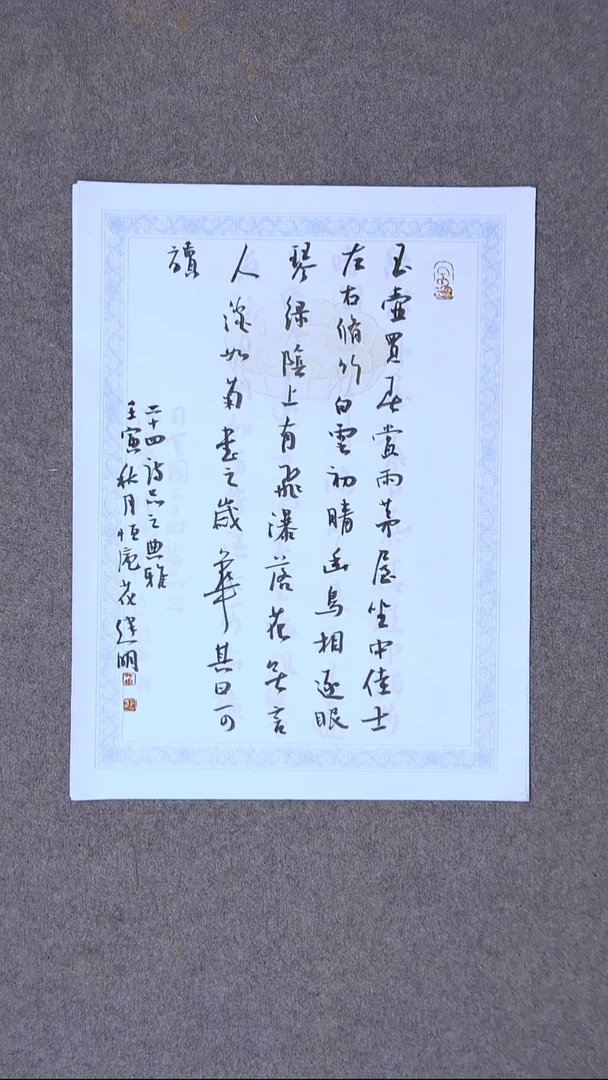 玉壺買春賞雨茅屋坐中佳士
左右脩竹白雲初晴幽鳥相逐眠
琴緑陰上有飛瀑落花無言
人淡如菊書之歲華其曰可
讀
二十四詩品之典雅
壬寅秋月恒庵花继明